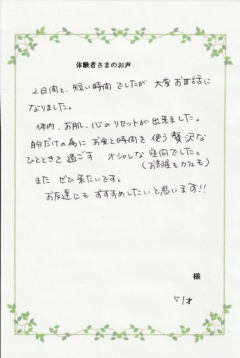 体験者さまのお声
2日間と、短い時間でしたが 大変お世話に
なりました。
体内、お肌、心のリセットが出来ました。
的だけの為にお金と時間を使う贅沢な
ひとときを過ごす オシャレな空間でした。
(お部屋もカフェも)
また ぜひ来たいです。
お友達にも すすめしたいと思います!!
様
51才